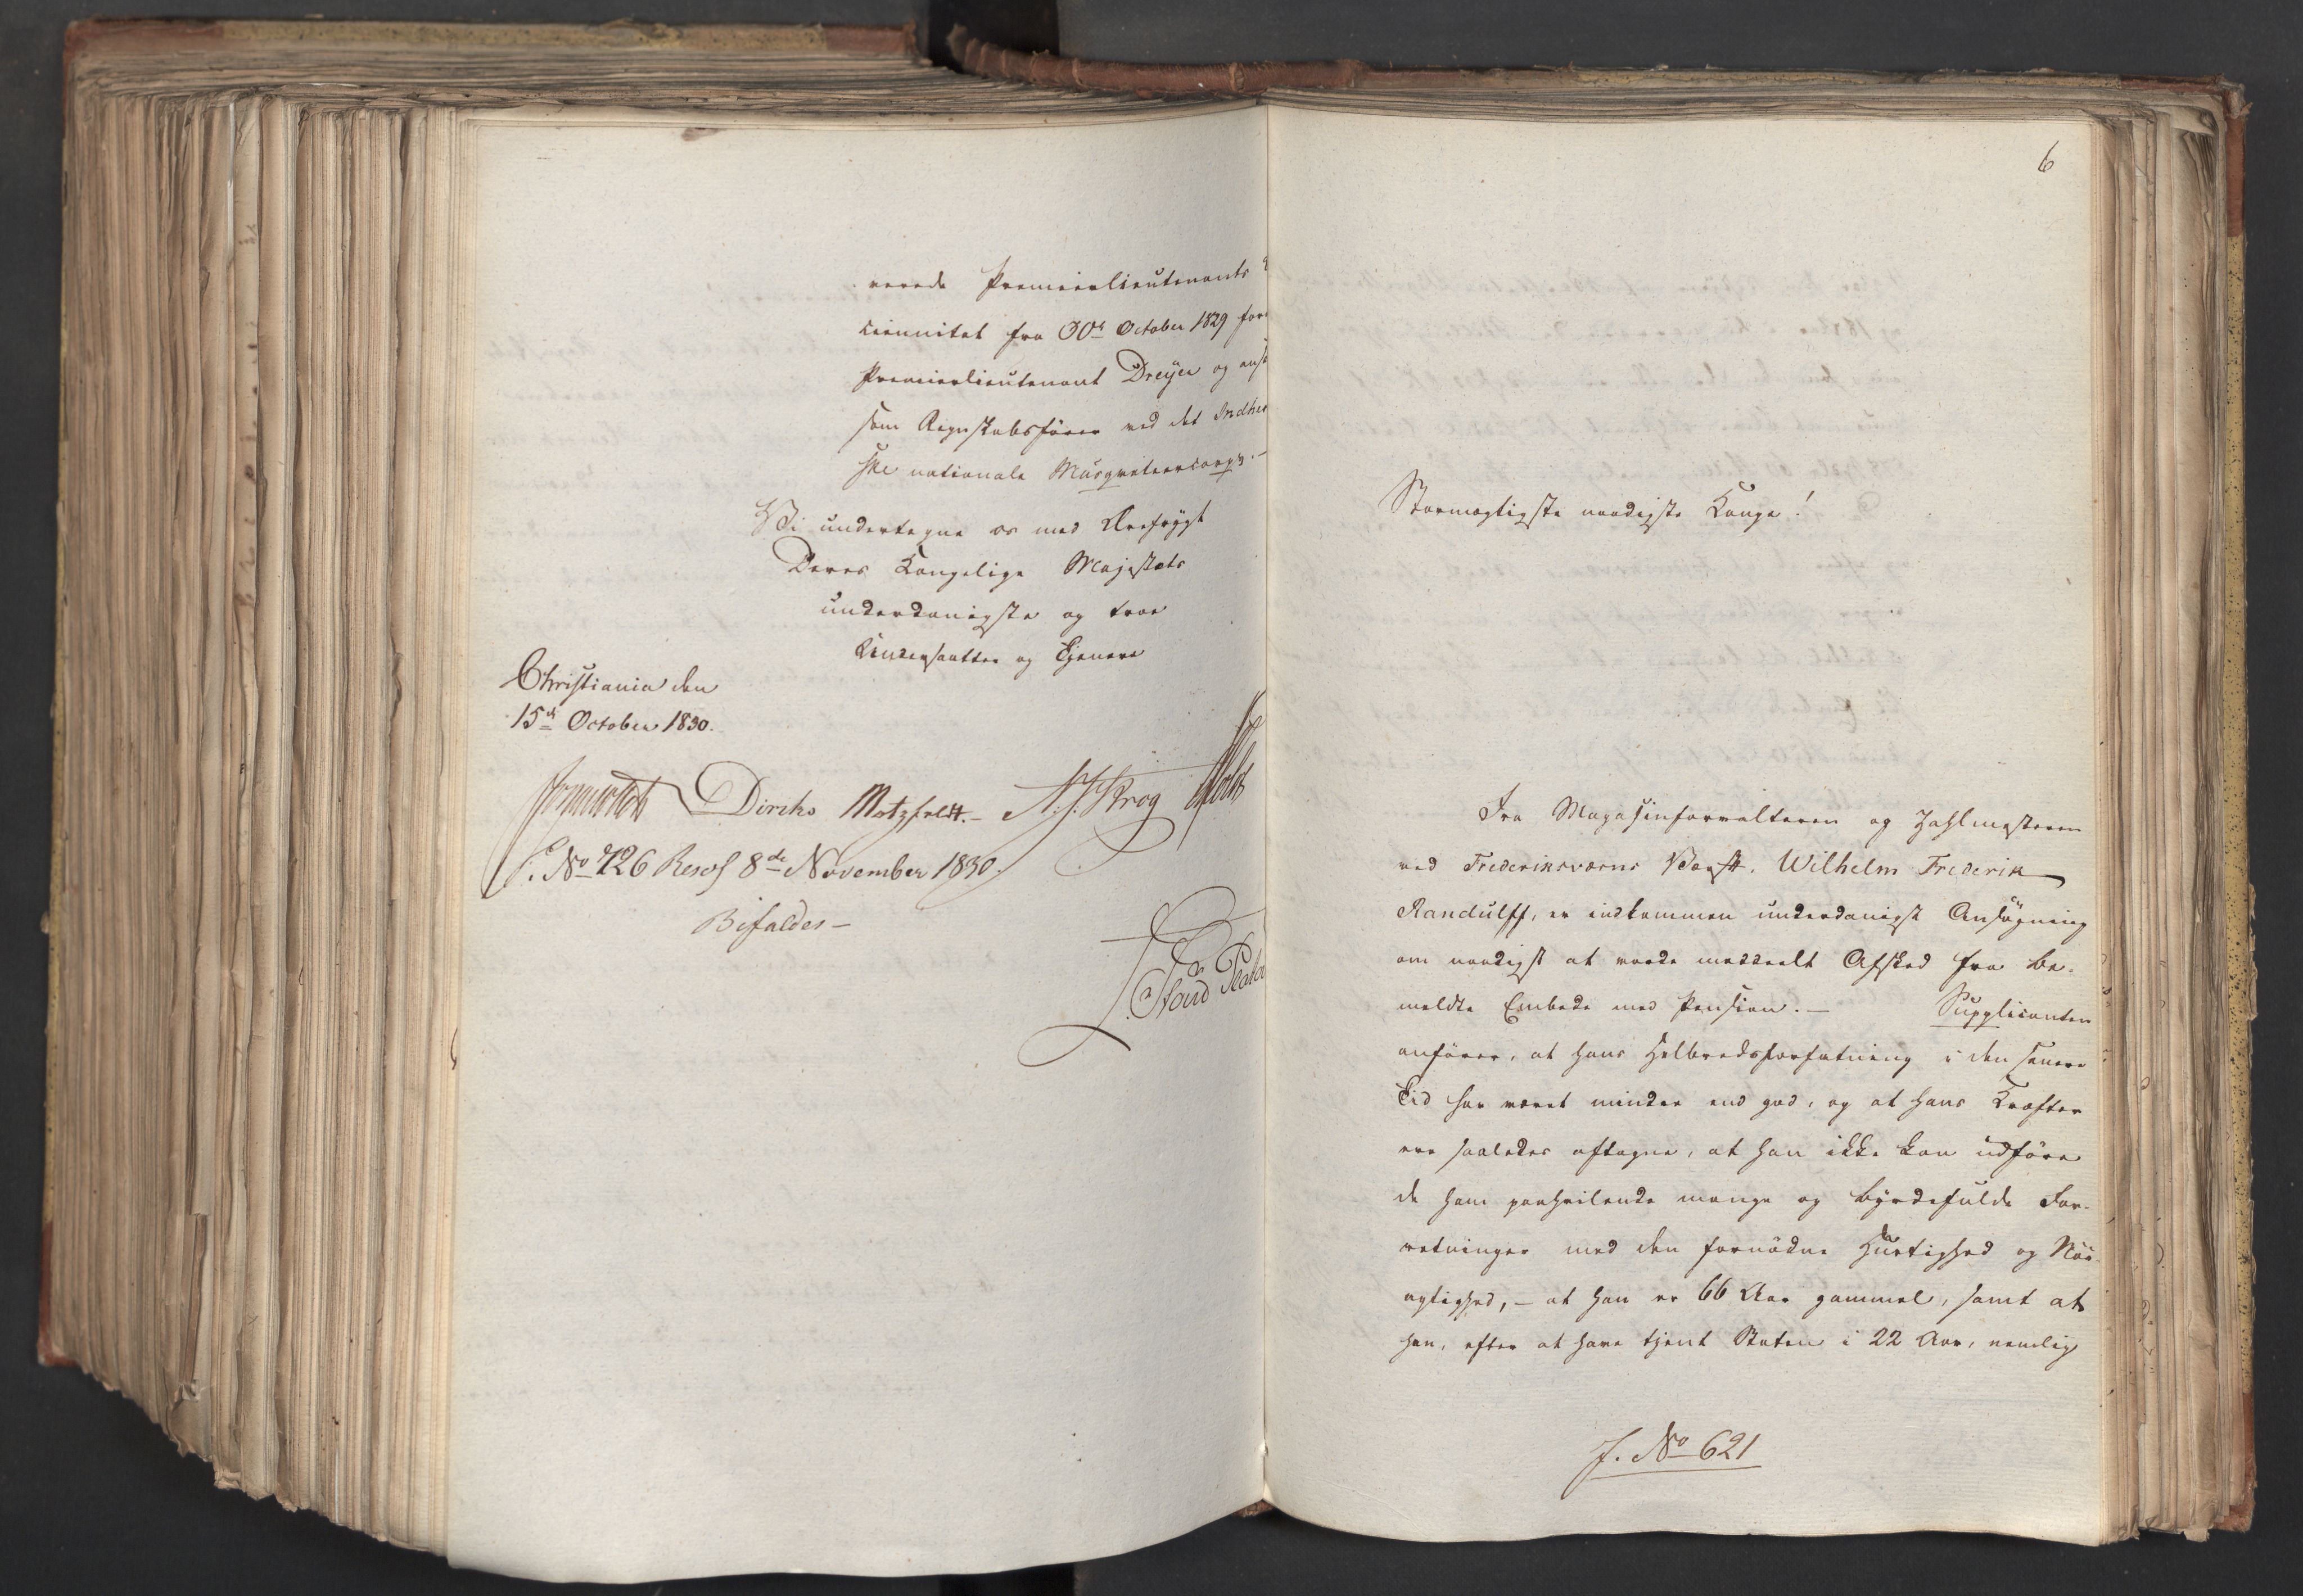 nerede Premierlieutenants
ciennitet fra 30te October 1829 for
Premierlieutenant Dreyer og ans
som Regnskabsfører ved det Indher
ske nationale Musqueteercorps.-
Vi undertegne os med Ærefrygt
Deres Kongelige Majestæts
underdanigste og troe
Undersaatter og Tjenere
Christiania den
15de October 1830.
Diriks Motzfeldt.- N. J. Krog Holst
S. No 726 Resol 8de November 1830.
Bifaldes-
6
Stormægtigste naadigste Konge!
Fra Magasinforvalteren og Zahlmesteren
ved Frederiksværns Værft, Wilhelm Frederik
Randulff, er indkommen underdanigst Ansøgning
om naadigst at vorde meddeelt Afsked fra be-
meldte Embede med Pension.- Supplicanten
anfører, at hans Helbredsforfatning i den senere
Tid har været mindre end god, og at hans Kræfter
ere saaledes aftagne, at han ikke kan udføre
de ham paahvilende mange og byrdefulde For-
retninger med den fornødne Hurtighed og Nöi-
agtighed,- at han er 66 Aar gammel, samt at
han, efter at have tjent Staten i 22 Aar, nemlig
J. No 621